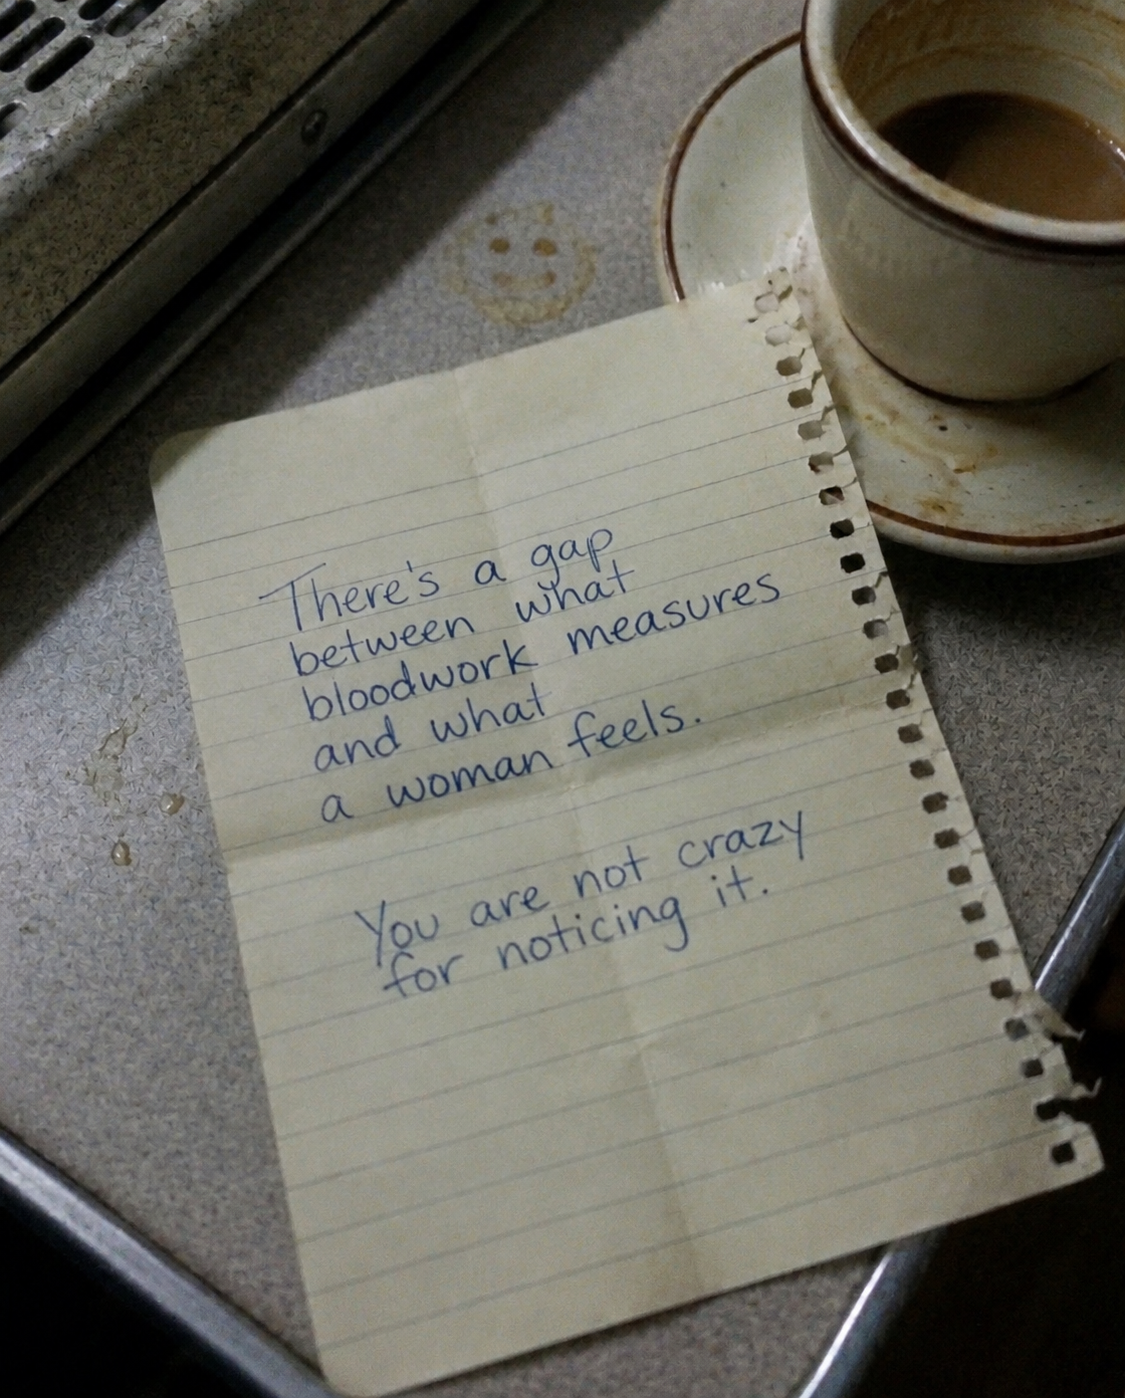 There's a gap
between what
bloodwork measures
and what
a woman feels.
You are not crazy
for noticing it.